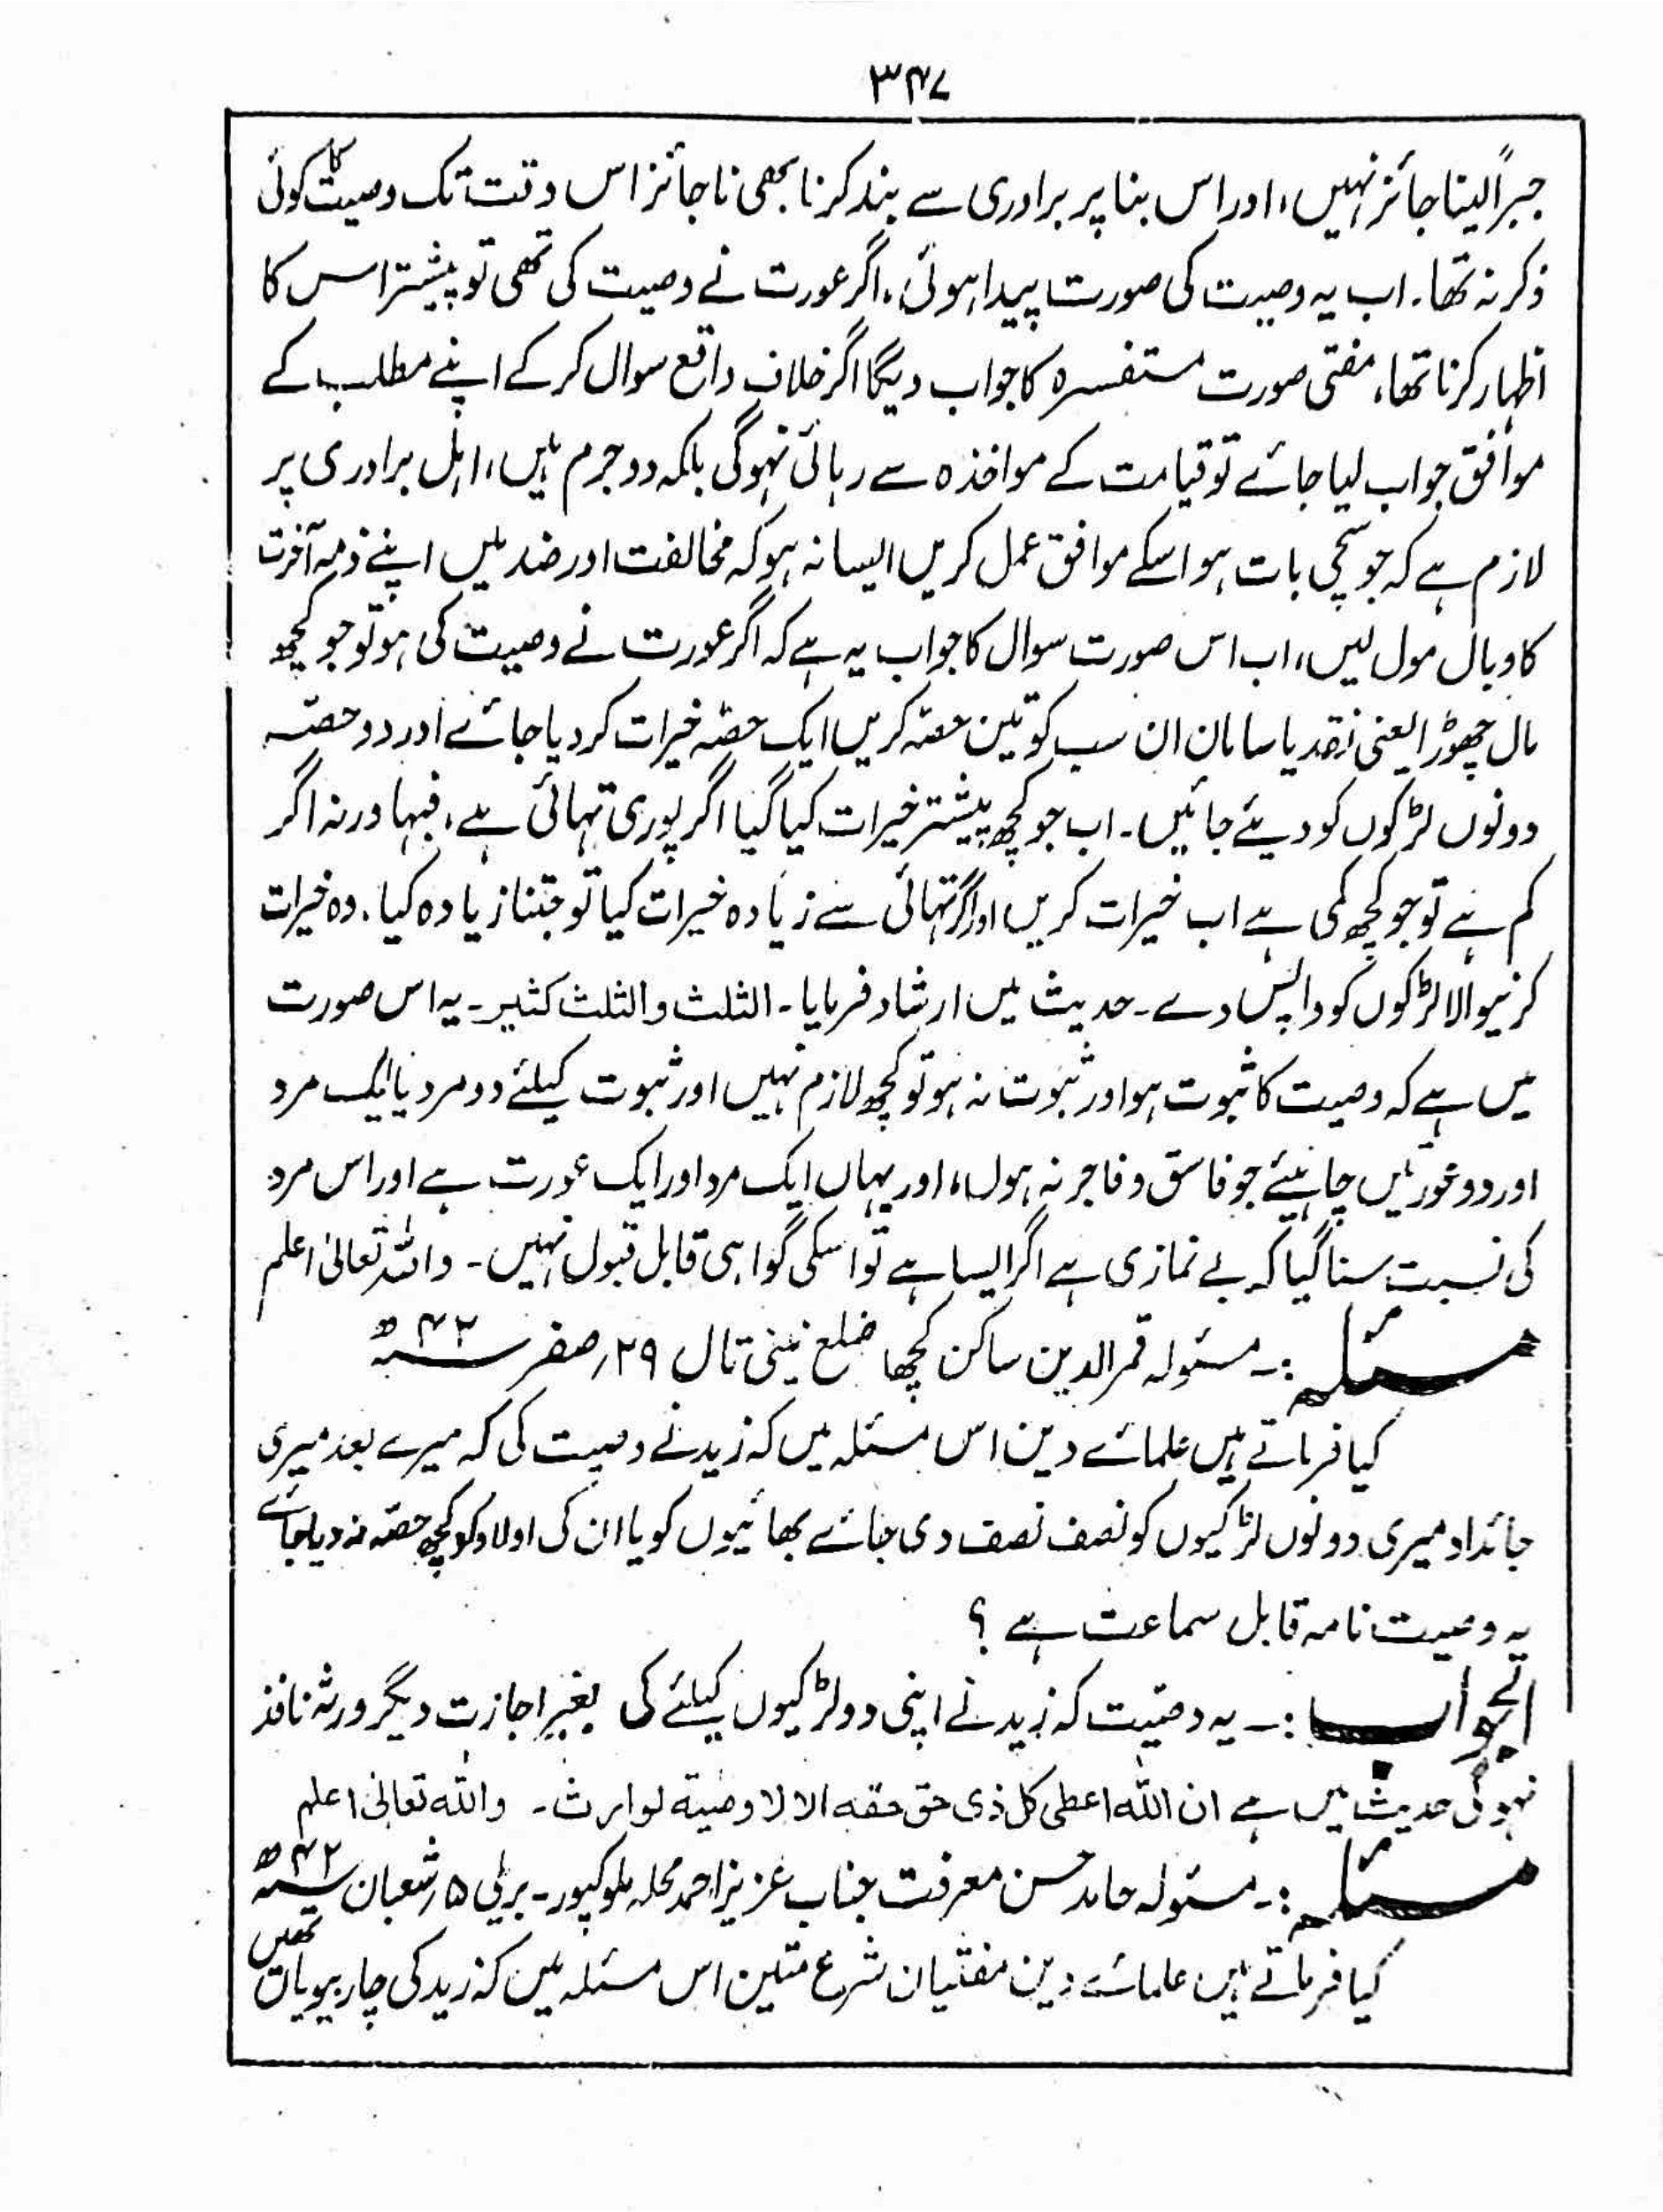 ۳۴۷
جبراً لینا جائز نہیں، اور اس بنا پر برادری سے بند کرنا بھی ناجائز اس وقت تک وصیت کا کوئی
ذکر نہ تھا۔ اب یہ وصیت کی صورت پیدا ہوئی، اگر عورت نے وصیت کی تھی تو پیشتر اس کا
اظہار کرنا تھا، مفتی صورت مستفسرہ کا جواب دیگا اگر خلاف واقع سوال کر کے اپنے مطلب کے
موافق جواب لیا جائے تو قیامت کے مواخذہ سے رہائی نہوگی بلکہ دو جرم ہیں، اہل برادری پر
لازم ہے کہ جو سچی بات ہو اسکے موافق عمل کریں ایسا نہ ہو کہ مخالفت اور ضد میں اپنے ذمہ آخرت
کا وبال مول لیں، اب اس صورت سوال کا جواب یہ ہے کہ اگر عورت نے وصیت کی ہو تو جو کچھ
مال چھوڑا یعنی نقد یا سامان ان سب کو تین حصّہ کریں ایک حصّہ خیرات کر دیا جائے اور دو حصّہ
دونوں لڑکوں کو دیئے جائیں۔ اب جو کچھ پیشتر خیرات کیا گیا اگر پوری تہائی ہے، فبہا ورنہ اگر
کم ہے تو جو کچھ کمی ہے اب خیرات کریں اور اگر تہائی سے زیادہ خیرات کیا تو جتنا زیادہ کیا، وہ خیرات
کرنیوالا لڑکوں کو واپس دے۔ حدیث میں ارشاد فرمایا۔ الثلث والثلث کثیر۔ یہ اس صورت
میں ہے کہ وصیت کا ثبوت ہو اور ثبوت نہ ہو تو کچھ لازم نہیں اور ثبوت کیلئے دو مرد یا ایک مرد
اور دو عورتیں چاہیئے جو فاسق و فاجر نہ ہوں، اور یہاں ایک مرد اور ایک عورت ہے اور اس مرد
کی نسبت سنا گیا کہ بے نمازی ہے اگر ایسا ہے تو اسکی گواہی قابل قبول نہیں۔ واللہ تعالیٰ اعلم
مسئلہ :۔ مسئولہ قمرالدین ساکن کچھا ضلع نینی تال ۲۹ رصفر سنہ ۴۲ ھ
کیا فرماتے ہیں علمائے دین اس مسئلہ میں کہ زید نے وصیت کی کہ میرے بعد میری
جائداد میری دونوں لڑکیوں کو نصف نصف دی جائے بھائیوں کو یا ان کی اولاد کو کچھ حصّہ نہ دیا جائے
یہ وصیت نامہ قابل سماعت ہے ؟
الجواب :۔ یہ وصیّت کہ زید نے اپنی دو لڑکیوں کیلئے کی بغیر اجازت دیگر ورثہ نافذ
نہوگی حدیث میں ہے ان اللہ اعطی کل ذی حق حقہ الا لا وصیة لوارث۔ واللہ تعالیٰ اعلم
مسئلہ :۔ مسئولہ حامد حسن معرفت جناب عزیز احمد محلہ ملوکپور۔ بریلی ۵ رشعبان سنہ ۴۲ ھ
کیا فرماتے ہیں علمائے دین مفتیان شرع متین اس مسئلہ میں کہ زید کی چار بیویاں تھیں